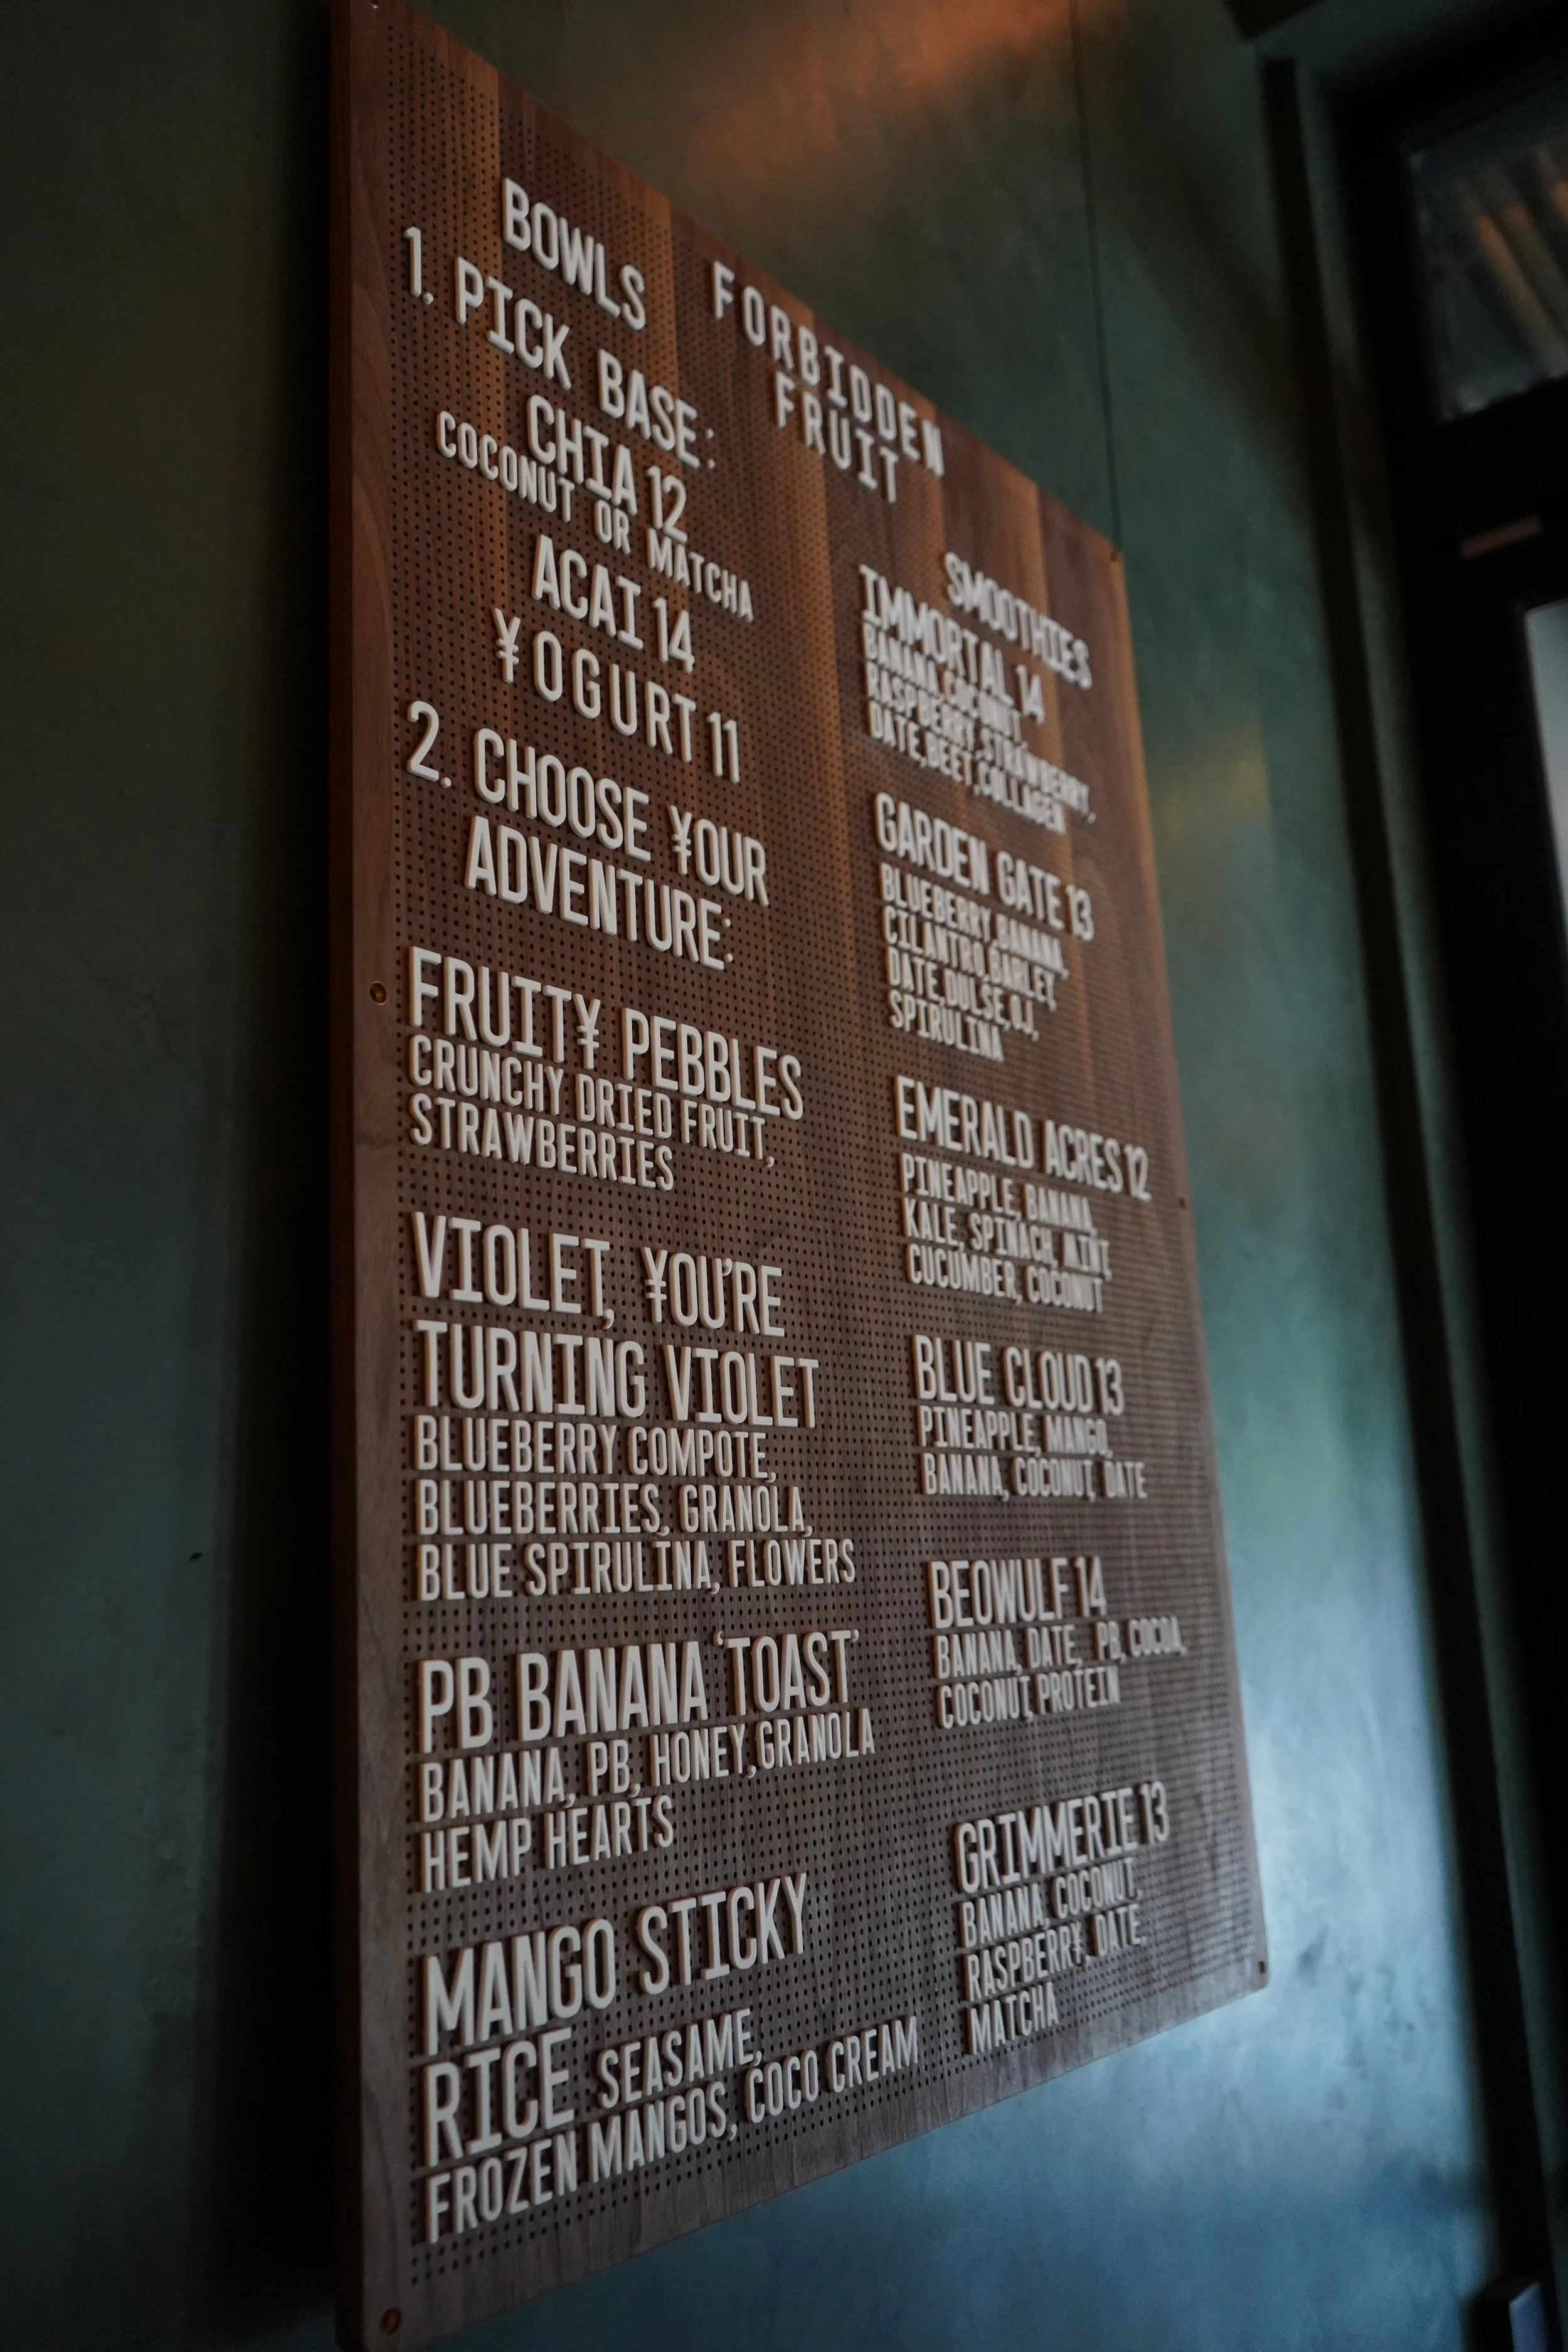 FORBIDDEN
FRUIT
BOWLS
1. PICK BASE:
CHIA 12
COCONUT OR MATCHA
ACAI 14
¥OGURT 11
2. CHOOSE ¥OUR
ADVENTURE:
FRUIT¥ PEBBLES
CRUNCHY DRIED FRUIT,
STRAWBERRIES
VIOLET, ¥OU'RE
TURNING VIOLET
BLUEBERRY COMPOTE,
BLUEBERRIES, GRANOLA,
BLUE SPIRULINA, FLOWERS
PB BANANA 'TOAST'
BANANA, PB, HONEY, GRANOLA
HEMP HEARTS
MANGO STICKY
RICE SEASAME,
FROZEN MANGOS, COCO CREAM
SMOOTHIES
IMMORTAL 14
BANANA, COCONUT,
RASPBERRY, STRAWBERRY,
DATE, BEET, COLLAGEN
GARDEN GATE 13
BLUEBERRY, BANANA,
CILANTRO, BARLEY,
DATE, DULSE, OJ,
SPIRULINA
EMERALD ACRES 12
PINEAPPLE, BANANA,
KALE, SPINACH, MINT,
CUCUMBER, COCONUT
BLUE CLOUD 13
PINEAPPLE, MANGO,
BANANA, COCONUT, DATE
BEOWULF 14
BANANA, DATE, PB, COCOA,
COCONUT, PROTEIN
GRIMMERIE 13
BANANA, COCONUT,
RASPBERR¥, DATE,
MATCHA